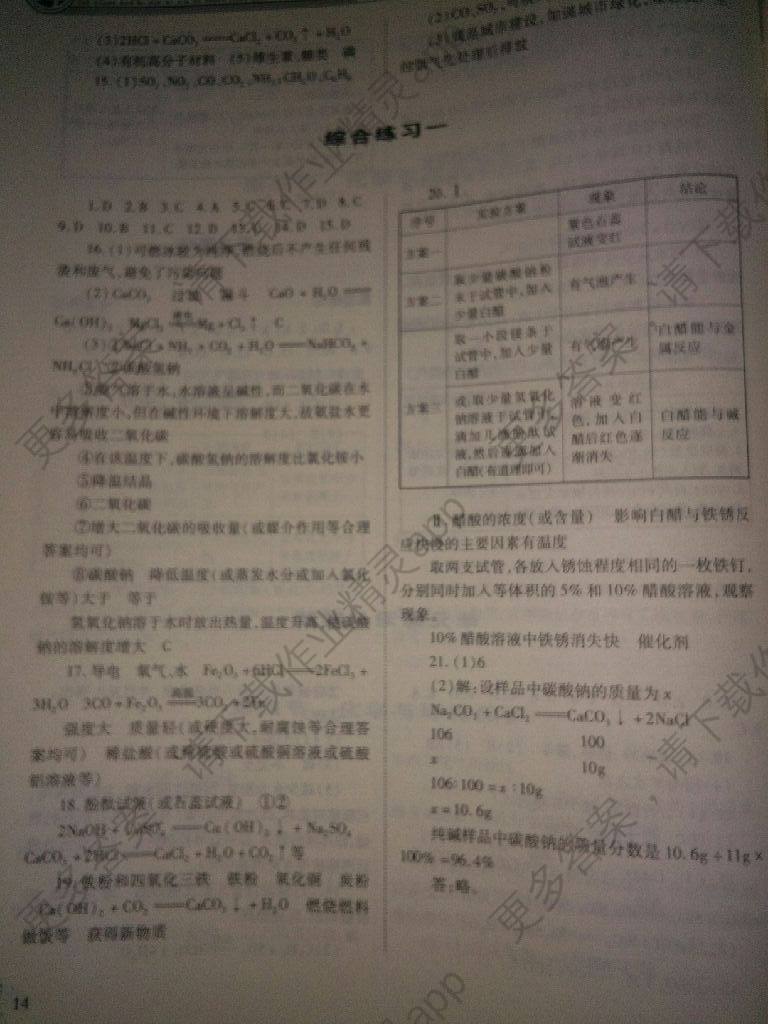 (3)2HCl+CaCO₃══CaCl₂+CO₂↑+H₂O
(4)有机高分子材料 (5)维生素、糖类
15.(1)SO₂、NO₂、CO、CO₂、NH₃、CH₂O、C₆H₆
(2)CO、SO₂
(3)
综合练习一
1.D 2.B 3.C 4.A 5.C 7.D 8.C
9.D 10.B 11.C 12.D 14.D 15.D
16.(1)可燃冰较为纯净,燃烧后不产生任何残
渣和废气,避免了污染问题
(2)CaCO₃ 过滤 漏斗 CaO+H₂O══
Ca(OH)₂ MgCl₂══Mg+Cl₂↑ C
(3)①NaCl+NH₃+CO₂+H₂O══NaHCO₃+
NH₄Cl ②碳酸氢钠
③氨气溶于水,水溶液呈碱性,而二氧化碳在水
中溶解度小,但在碱性环境下溶解度大,故氨盐水更
容易吸收二氧化碳
④在该温度下,碳酸氢钠的溶解度比氯化铵小
⑤降温结晶
⑥二氧化碳
⑦增大二氧化碳的吸收量(或媒介作用等合理
答案均可)
⑧碳酸钠 降低温度(或蒸发水分或加入氯化
铵等)大于 等于
氢氧化钠溶于水时放出热量,温度升高,使碳酸
钠的溶解度增大 C
17.导电 氧气、水 Fe₂O₃+6HCl══2FeCl₃+
3H₂O 3CO+Fe₂O₃══3CO₂+2Fe
强度大 质量轻(或硬度大、耐腐蚀等合理答
案均可) 稀盐酸(或稀硫酸或硫酸铜溶液或硫酸
铝溶液等)
18.酚酞试液(或石蕊试液) ①②
2NaOH+CuSO₄══Cu(OH)₂↓+Na₂SO₄
CaCO₃+2HCl══CaCl₂+H₂O+CO₂↑等
19.铁粉和四氧化三铁 铁粉 氧化铜 炭粉
Ca(OH)₂+CO₂══CaCO₃↓+H₂O 燃烧燃料
做饭等 获得新物质
20.Ⅰ.
序号 实验方案 现象 结论
方案一 紫色石蕊
试液变红
方案二 取少量碳酸钠粉
末于试管中,加入
少量白醋 有气泡产生
方案三 取一小段镁条于
试管中,加入少量
白醋 有气泡产生 白醋能与金
属反应
或:取少量氢氧化
钠溶液于试管中,
滴加几滴酚酞试
液,然后逐滴加入
白醋(有道理即可) 溶液变红
色,加入白
醋后红色逐
渐消失 白醋能与碱
反应
Ⅱ.醋酸的浓度(或含量) 影响白醋与铁锈反
应快慢的主要因素有温度
取两支试管,各放入锈蚀程度相同的一枚铁钉,
分别同时加入等体积的5%和10%醋酸溶液,观察
现象。
10%醋酸溶液中铁锈消失快 催化剂
21.(1)6
(2)解:设样品中碳酸钠的质量为x
Na₂CO₃+CaCl₂══CaCO₃↓+2NaCl
106 100
x 10g
106∶100=x∶10g
x=10.6g
纯碱样品中碳酸钠的质量分数是10.6g÷11g×
100%=96.4%
答:略。
14
更多答案,请下载作业精灵app